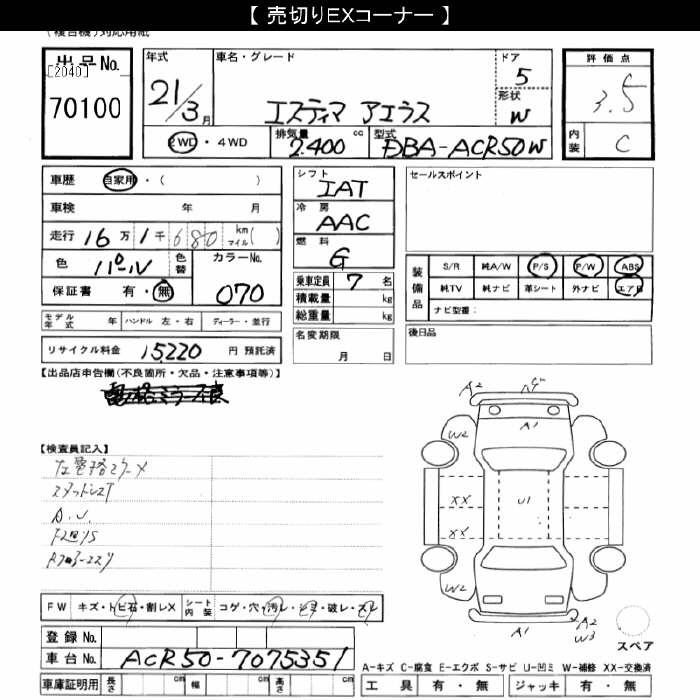 【 売切りEXコーナー 】
(複合機)対応用紙
出品No.
[2040]
70100
年式
21/3月
車名・グレード
エスティマ アエラス
ドア
5
形状
W
評価点
3.5
内装
C
2WD・4WD
排気量
2.400 cc
型式
DBA-ACR50W
車歴 自家用・( )
車検 年 月
走行 16万 1千 680 km マイル( )
色 パール
色替
カラーNo.
070
保証書 有・無
シフト
IAT
冷房
AAC
燃料
G
乗車定員 7 名
積載量 kg
総重量 kg
名変期限
月 日
セールスポイント
装備品
S/R 純A/W P/S P/W ABS
純TV 純ナビ 革シート 外ナビ エアB
ナビ型番：
後日品
モデル年式 年 ハンドル 左・右 ディーラー・並行
リサイクル料金 15220 円 預託済
【出品店申告欄(不良箇所・欠品・注意事項等)】
電格ミラー不良
【検査員記入】
左電格ミラー×
A.U.
A2 A1 W2 XX U1 XX W2 A1 A2 W3
スペア
FW キズ・トビ石・割レX シート内装 コゲ・穴・汚レ・シミ・破レ・スレ
登録No.
車台No. ACR50-7075351
車庫証明用 長さ cm 幅 cm 高さ cm
A-キズ C-腐食 E-エクボ S-サビ U-凹ミ W-補修 XX-交換済
工具 有・無 ジャッキ 有・無